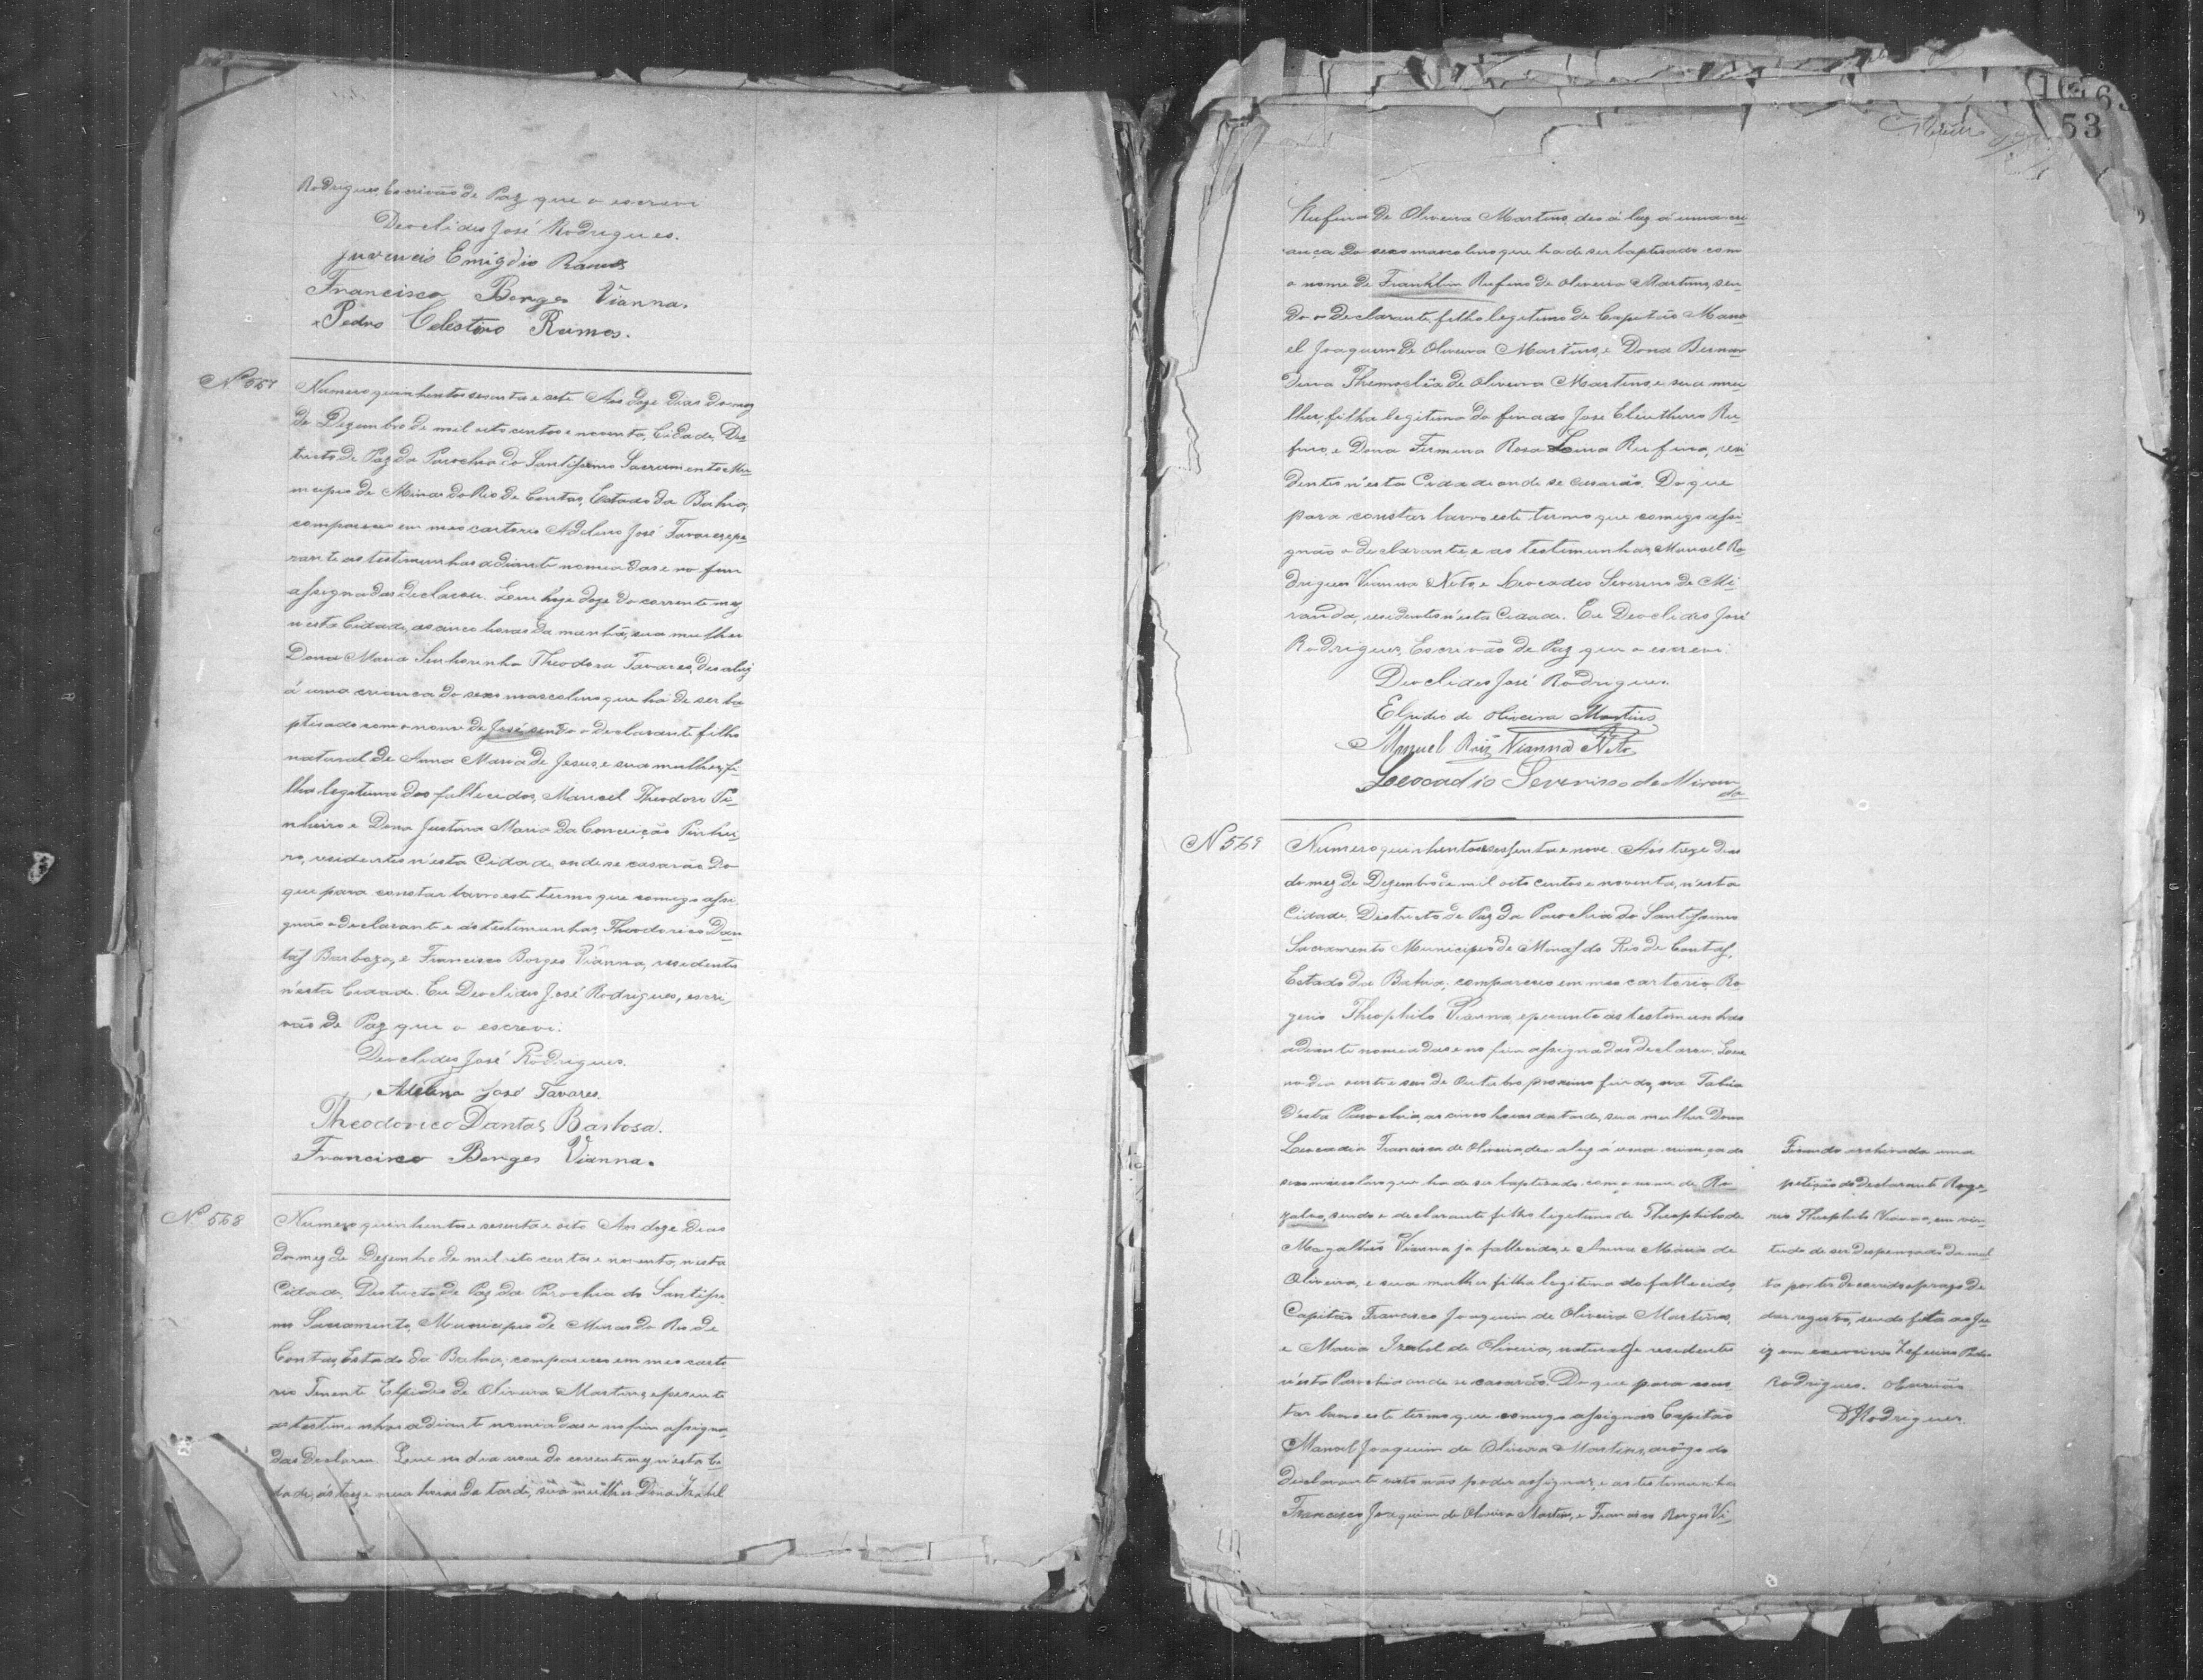 Rodrigues, Escrivão de Paz que o escrevi
Deoclides José Rodrigues.
Juvencio Emigdio Ramos
Francisco Borges Vianna.
Pedro Celestino Ramos.
Nº 567
Numero quinhentos sesenta e sete Aos doze dias do mez
de Dezembro de mil oito centos e noventa, Cidade, Dis
tricto de Paz da Parochia do Santissimo Sacramento Mu
nicipio de Minas do Rio de Contas, Estado da Bahia,
compareceo em meo cartorio Adelino José Tavares, e pe
rante as testimunhas adiante nomeadas e no fim
assignadas declarou. Que hoje doze do corrente mez
n'esta Cidade, as cinco horas da manhã, sua mulher
Dona Maria Senhorinha Theodora Tavares, deo a luz
á uma criança do sexo mascolino que há de ser ba
ptisado com o nome de José, sendo o declarante filho
natural de Anna Maria de Jesus, e sua mulher, fi-
lha legitima dos fallecidos, Manoel Theodoro Pi-
nheiro e Dona Justina Maria da Conceição Pinhei
ro, residentes n'esta Cidade, onde se casarão Do
que para constar lavro este termo que comigo assi
gnão o declarante e as testimunhas, Theodorico Dan
tas Barboza, e Francisco Borges Vianna, residentes
n'esta Cidade. Eu Deoclides José Rodrigues, escri,
vão de Paz que o escrevi.
Deoclides José Rodrigues.
Adelino José Tavares.
Theodorico Dantas Barbosa.
Francisco Borges Vianna.
Nº 568
Numero quinhentos e sesenta e oito Aos doze dias
do mez de Dezembro de mil oito centos e noventa, n'esta
Cidade, Districto de Paz da Parochia do Santissi
mo Sacramento, Municipio de Minas do Rio de
Contas, Estado da Bahia, compareceo em meo carto
rio Tenente Elpidio de Oliveira Martins, e perante
as testimunhas adiante nomeadas e no fim assigna
das declarou. Que no dia nove do corrente mez n'esta Ci
dade, ás tres e meia horas da tarde, sua mulher Dona Izabel
53
Rufina de Oliveira Martins, deo á luz á uma cri
ança do sexo mascolino que ha de ser baptisado com
o nome de Franklin Rufino de Oliveira Martins, sen-
do o declarante, filho legitimo de Capitão Mano
el Joaquim de Oliveira Martins, e Dona Bernar
dina Themoclia de Oliveira Martins, e sua mu
lher, filha legitima do finado José Eleutherio Ru
fino, e Dona Firmina Rosa Lima Rufina, resi
dentes n'esta Cidade onde se casarão. Do que
para constar lavro este termo que comigo assi
gnão o declarante, e as testimunhas, Manoel Ro
drigues Vianna Neto, e Leocadio Severino de Mi
randa, residentes n'esta Cidade. Eu Deoclides José
Rodrigues, Escrivão de Paz que o escrevi.
Deoclides José Rodrigues.
Elpidio de Oliveira Martins
Manuel Roiz Vianna Neto
Leocadio Severino de Miran
da
Nº 569
Numero quinhentos sessenta e nove. Aos treze dias
do mez de Dezembro de mil oito centos e noventa, n'esta
Cidade, Districto de Paz da Parochia do Santissimo
Sacramento Municipio de Minas do Rio de Contas,
Estado da Bahia, compareceo em meo cartorio Ro
gerio Theophilo Vianna, e perante as testimunhas
adiante nomeadas e no fim assignadas declarou. Que
no dia vinte e seis de Outubro proximo findo, na
d'esta Parochia, as cinco horas da tarde, sua mulher Dona
Leocadia Francisca de Oliveira, deo a luz á uma criança do
sexo mascolino que ha de ser baptisado com o nome de Ro
zalvo, sendo o declarante filho legitimo de Theophilo de
Magalhães Vianna já fallecido, e Anna Maria de
Oliveira, e sua mulher filha legitima do fallecido,
Capitão Francisco Joaquim de Oliveira Martins,
e Maria Izabel de Oliveira, naturaes e residentes
n'esta Parochia onde se casarão. Do que para cons-
tar lavro este termo que comigo assignão Capitão
Manoel Joaquim de Oliveira Martins, arôgo do
declarante visto não poder assignar, e as testimunhas
Francisco Joaquim de Oliveira Martins, e Francisco Borges Vi,
Ficando archivada uma
petição do declarante Roge-
rio Theophilo Vianna, em vir-
tude de ser despensado da mul
ta por ter decorrido o prazo de
dar registro, sendo feita ao Ju
iz em exercicio Zeferino Pedro
Rodrigues. O Escrivão
D Rodrigues.